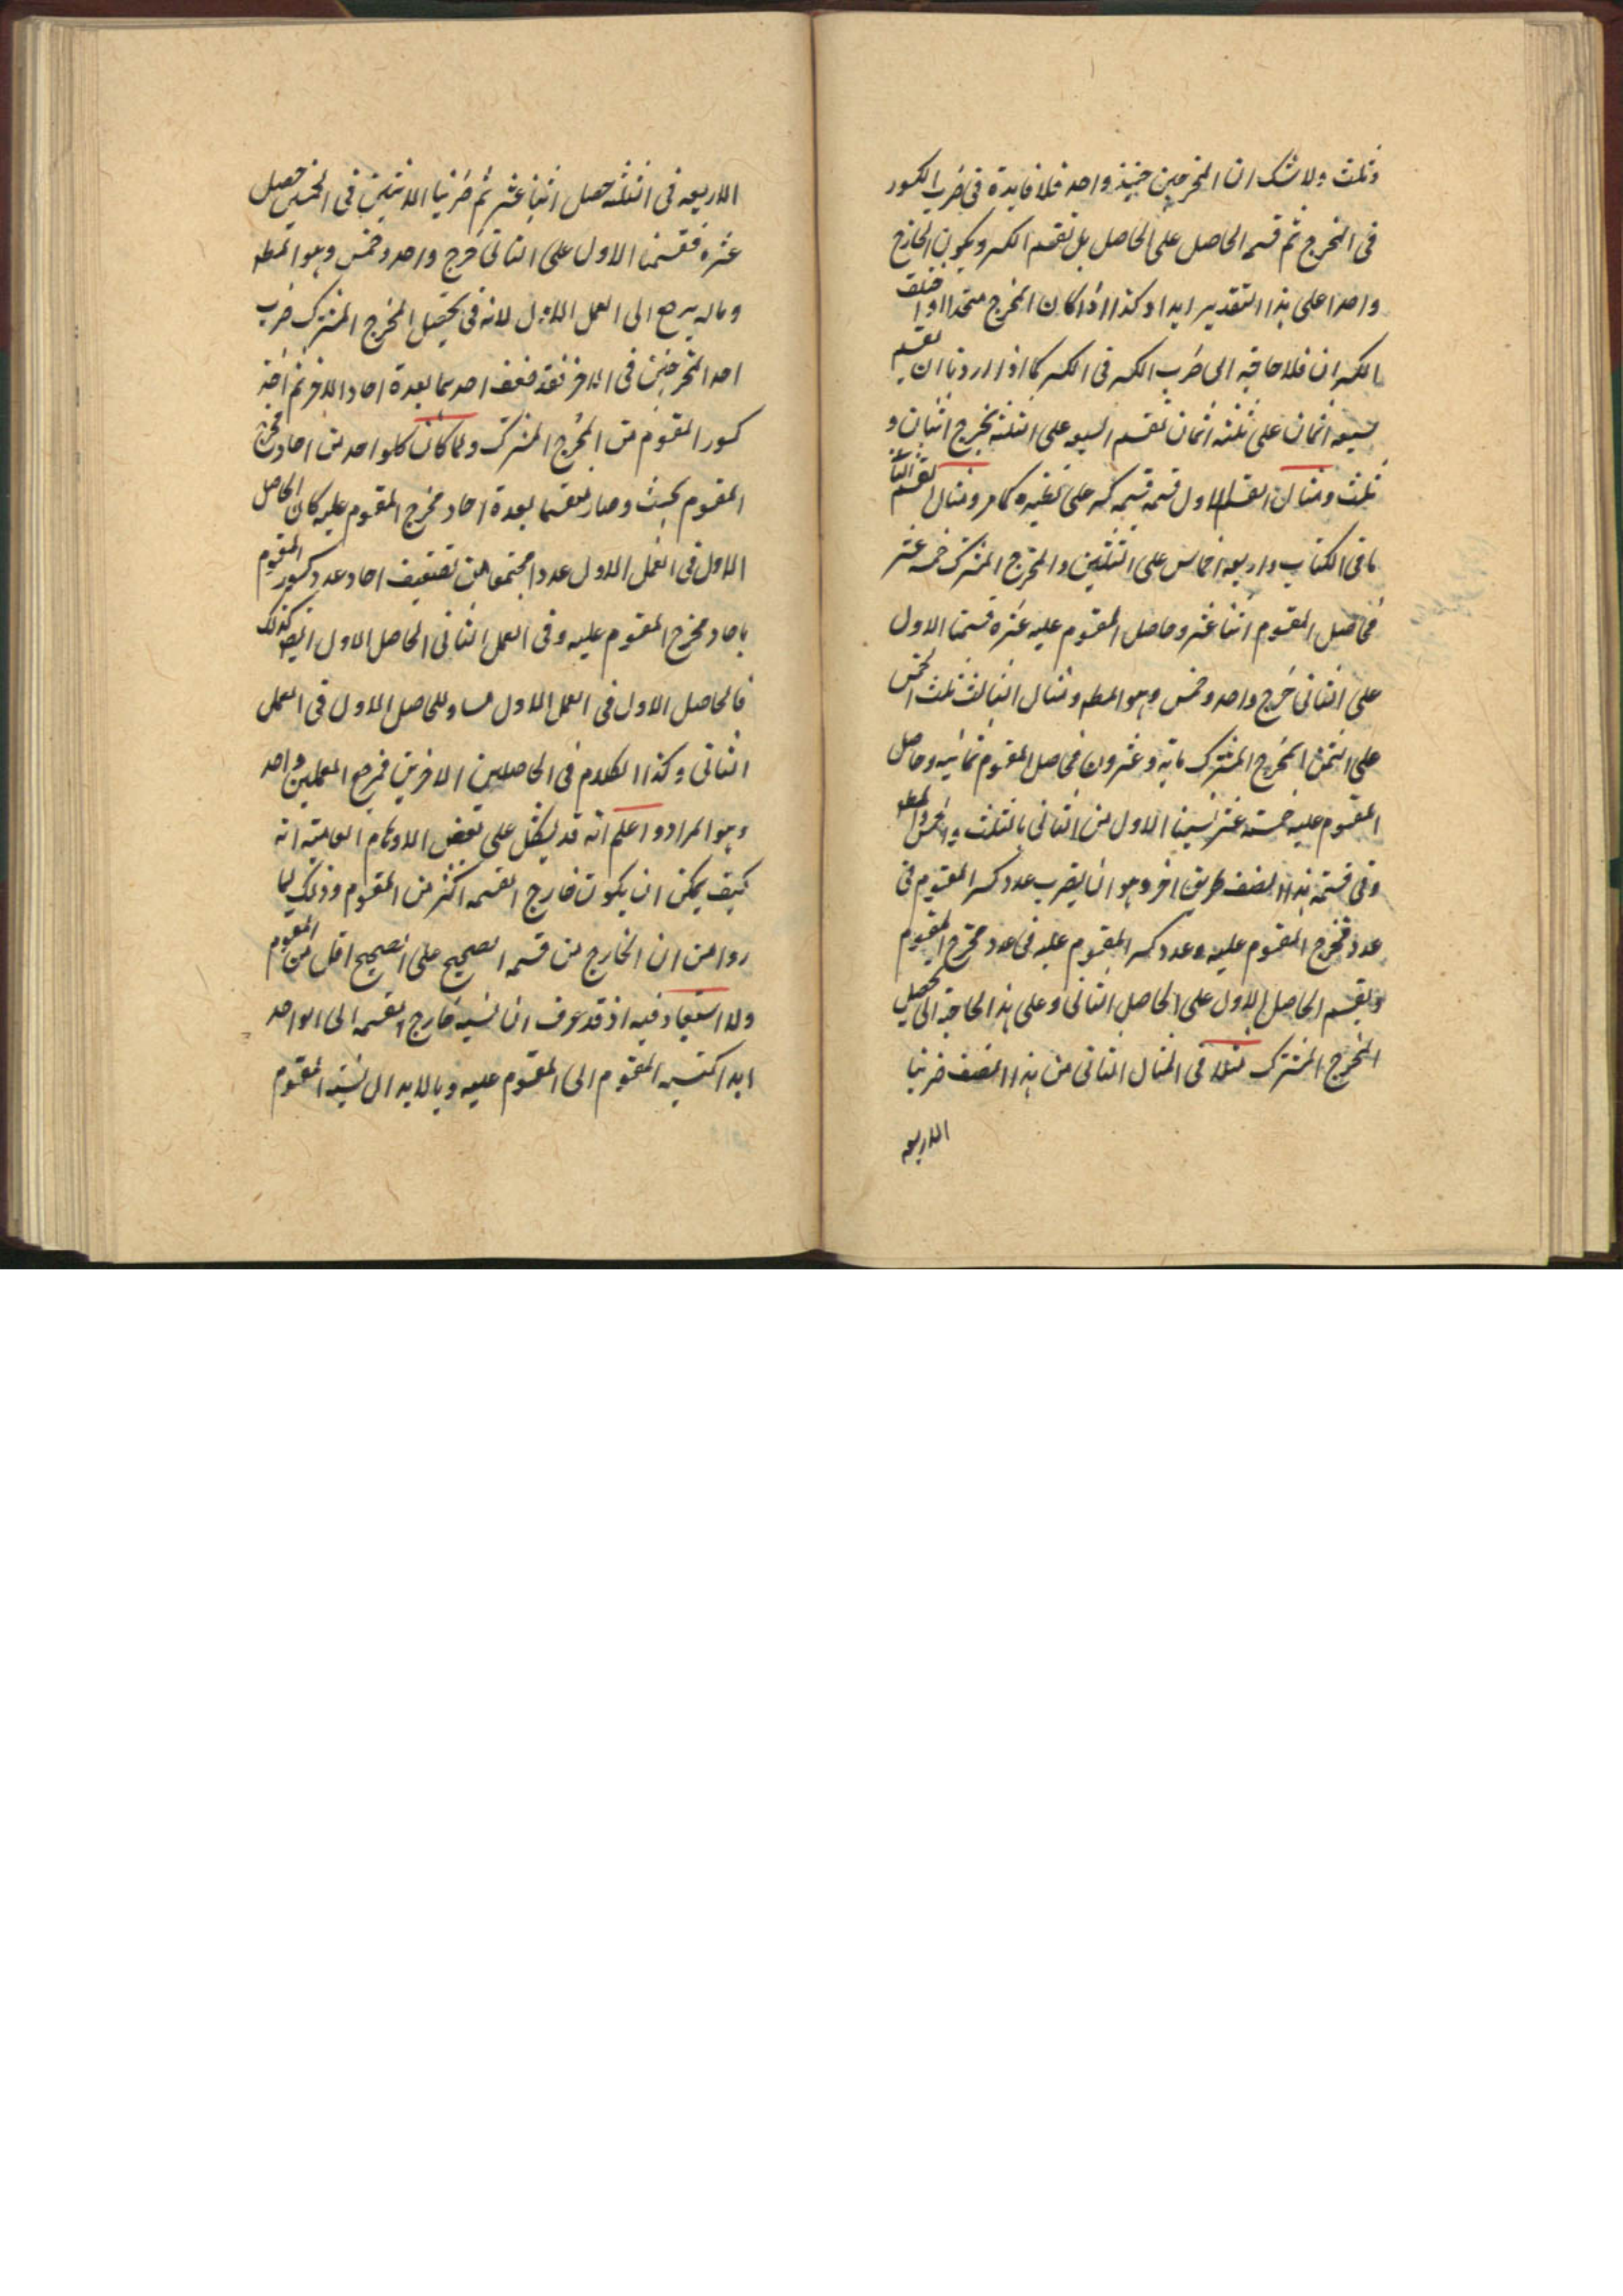 وثلث ولا شك ان المخرجين حينئذ واحد فلا فايدة فى ضرب الكسور
فى المخرج ثم قسمه الحاصل على الحاصل بل نقسم الكسر ويكون الخارج
واحدا على هذا التقدير ابدا وكذا اذا كان المخرج متحدا واختلف
الكسران فلا حاجة الى ضرب الكسر فى الكسر كما اذا اردنا ان نقسم
سبعه اثمان على ثلثه اثمان نقسم السبعه على الثلثه يخرج اثنان و
ثلث ومثال القسم الاول قسمة كسر على غيره كما مر ومثال القسم الثانى
ما فى الكتاب واربعه اخماس على الثلثين والمخرج المشترك خمسه عشر
فحاصل المقسوم اثنا عشر وحاصل المقسوم عليه عشره قسمنا الاول
على الثانى خرج واحد وخمس وهو المط ومثال الثالث ثلث الخمس
على الثمن المخرج المشترك مايه وعشرون فحاصل المقسوم ثمانيه وحاصل
المقسوم عليه خمسه عشر نسبنا الاول من الثانى بالثلث والخمس وهو المط
وفى قسمة هذا الصنف طريق اخر وهو ان يضرب عدد كسر المقسوم فى
عدد مخرج المقسوم عليه وعدد كسر المقسوم عليه فى عدد مخرج المقسوم
ويقسم الحاصل الاول على الحاصل الثانى وعلى هذا لا حاجة الى تحصيل
المخرج المشترك مثلا فى المثال الثانى من هذا الصنف ضربنا
الاربعه
الاربعه فى الثلثه حصل اثنا عشر ثم ضربنا الاثنين فى الخمس حصل
عشره فقسمنا الاول على الثانى خرج واحد وخمس وهو المط
وماله يرجع الى العمل الاول لانه فى تحصيل المخرج المشترك ضرب
احد المخرجين فى الاخر فقد ضعف احدهما بعدة احاد الاخر ثم اخذ
كسور المقسوم من المخرج المشترك ولما كان كل واحد من احاد مخرج
المقسوم بحيث وصار منقسما بعدة احاد مخرج المقسوم عليه كان الحاصل
الاول فى العمل الاول عددا مجتمعا من تضعيف احاد عدد كسور المقسوم
باحاد مخرج المقسوم عليه وفى العمل الثانى الحاصل الاول ايضا كذلك
فالحاصل الاول فى العمل الاول مساو للحاصل الاول فى العمل
الثانى وكذا الكلام فى الحاصلين الاخرين فمرجع العملين واحد
وهو المراد واعلم انه قد يشكل على بعض الاوهام العاميه انه
كيف يمكن ان يكون خارج القسمه اكثر من المقسوم وذلك لما
راوا من ان الخارج من قسمه الصحيح على الصحيح اقل من المقسوم
ولا استبعاد فيه اذ قد عرف ان نسبه خارج القسمه الى الواحد
ابدا كنسبه المقسوم الى المقسوم عليه وبالابدال نسبه المقسوم